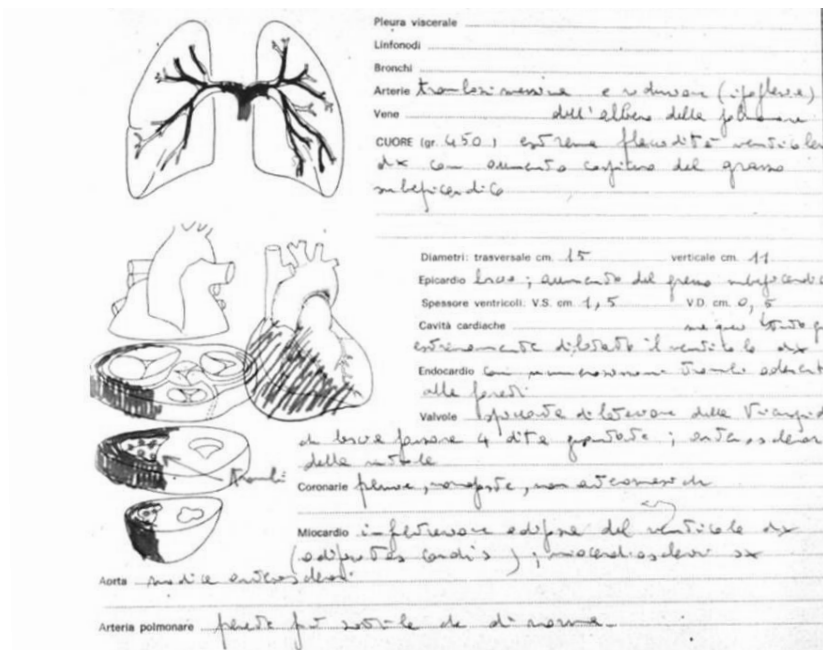 Pleura viscerale
Linfonodi
Bronchi
Arterie trombosi massiva e riduzione (ipoplasia)
Vene dell'albero della polmonare
CUORE (gr. 450) estrema flaccidità ventricolo
dx con aumento cospicuo del grasso
subepicardico
Diametri: trasversale cm. 15 verticale cm. 11
Epicardio liscio; aumento del grasso subepicardico
Spessore ventricoli: V.S. cm. 1,5 V.D. cm. 0,5
Cavità cardiache
estremamente dilatato il ventricolo dx
Endocardio con numerosissimi trombi aderenti
alle pareti
Valvole spiccata dilatazione della Tricuspide
che lascia passare 4 dita
della mitrale
trombi
Coronarie pervie, non
Miocardio infiltrazione adiposa del ventricolo dx
(adipositas cordis); miocardiosclerosi sx
Aorta modica aterosclerosi
Arteria polmonare parete più sottile di norma.